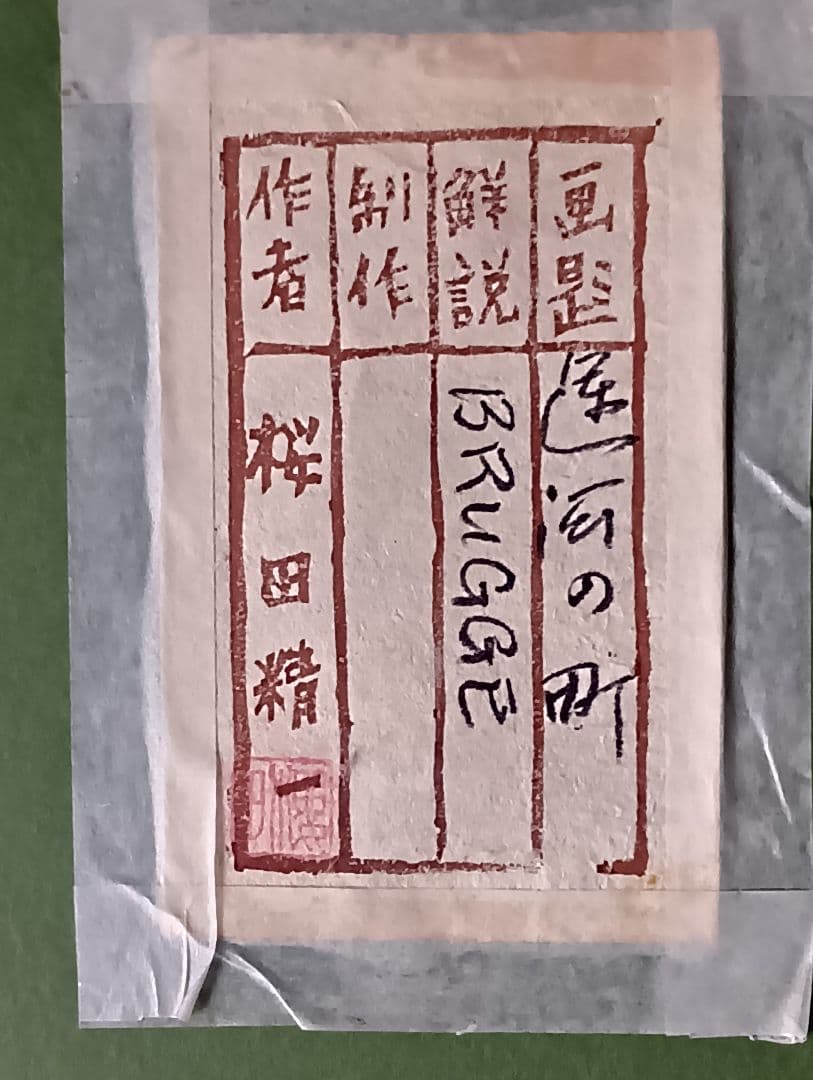 画題 運河の町
解説 BRUGGE
制作
作者 桜田精一